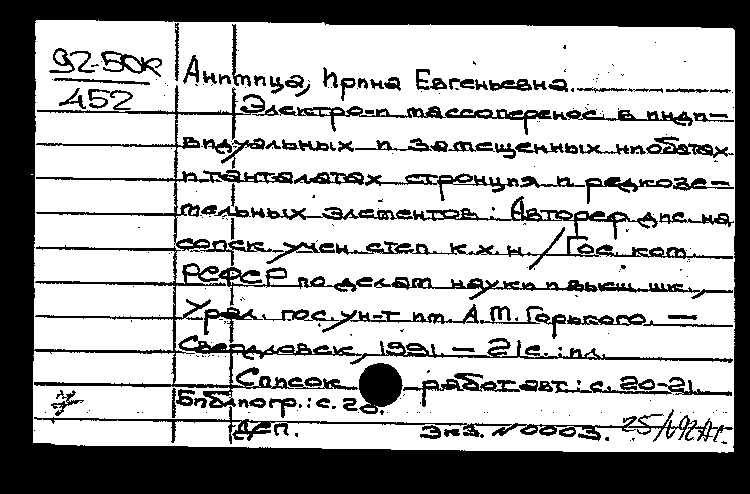 92-50к
452
Анимица, Ирина Евгеньевна.
Электро-и массоперенос в инди-
видуальных и замещенных ниобатах
и танталатах стронция и редкозе-
мельных элементов : Автореф. дис. на
соиск. учен. степ. к.х.н. / Гос. ком.
РСФСР по делам науки и высш. шк.,
Урал. гос. ун-т им. А.М. Горького. —
Свердловск, 1991. — 21 с. : ил.
Список работ авт.: с. 20-21.
Библиогр.: с. 20.
ДЕП. Экз. № 0003.